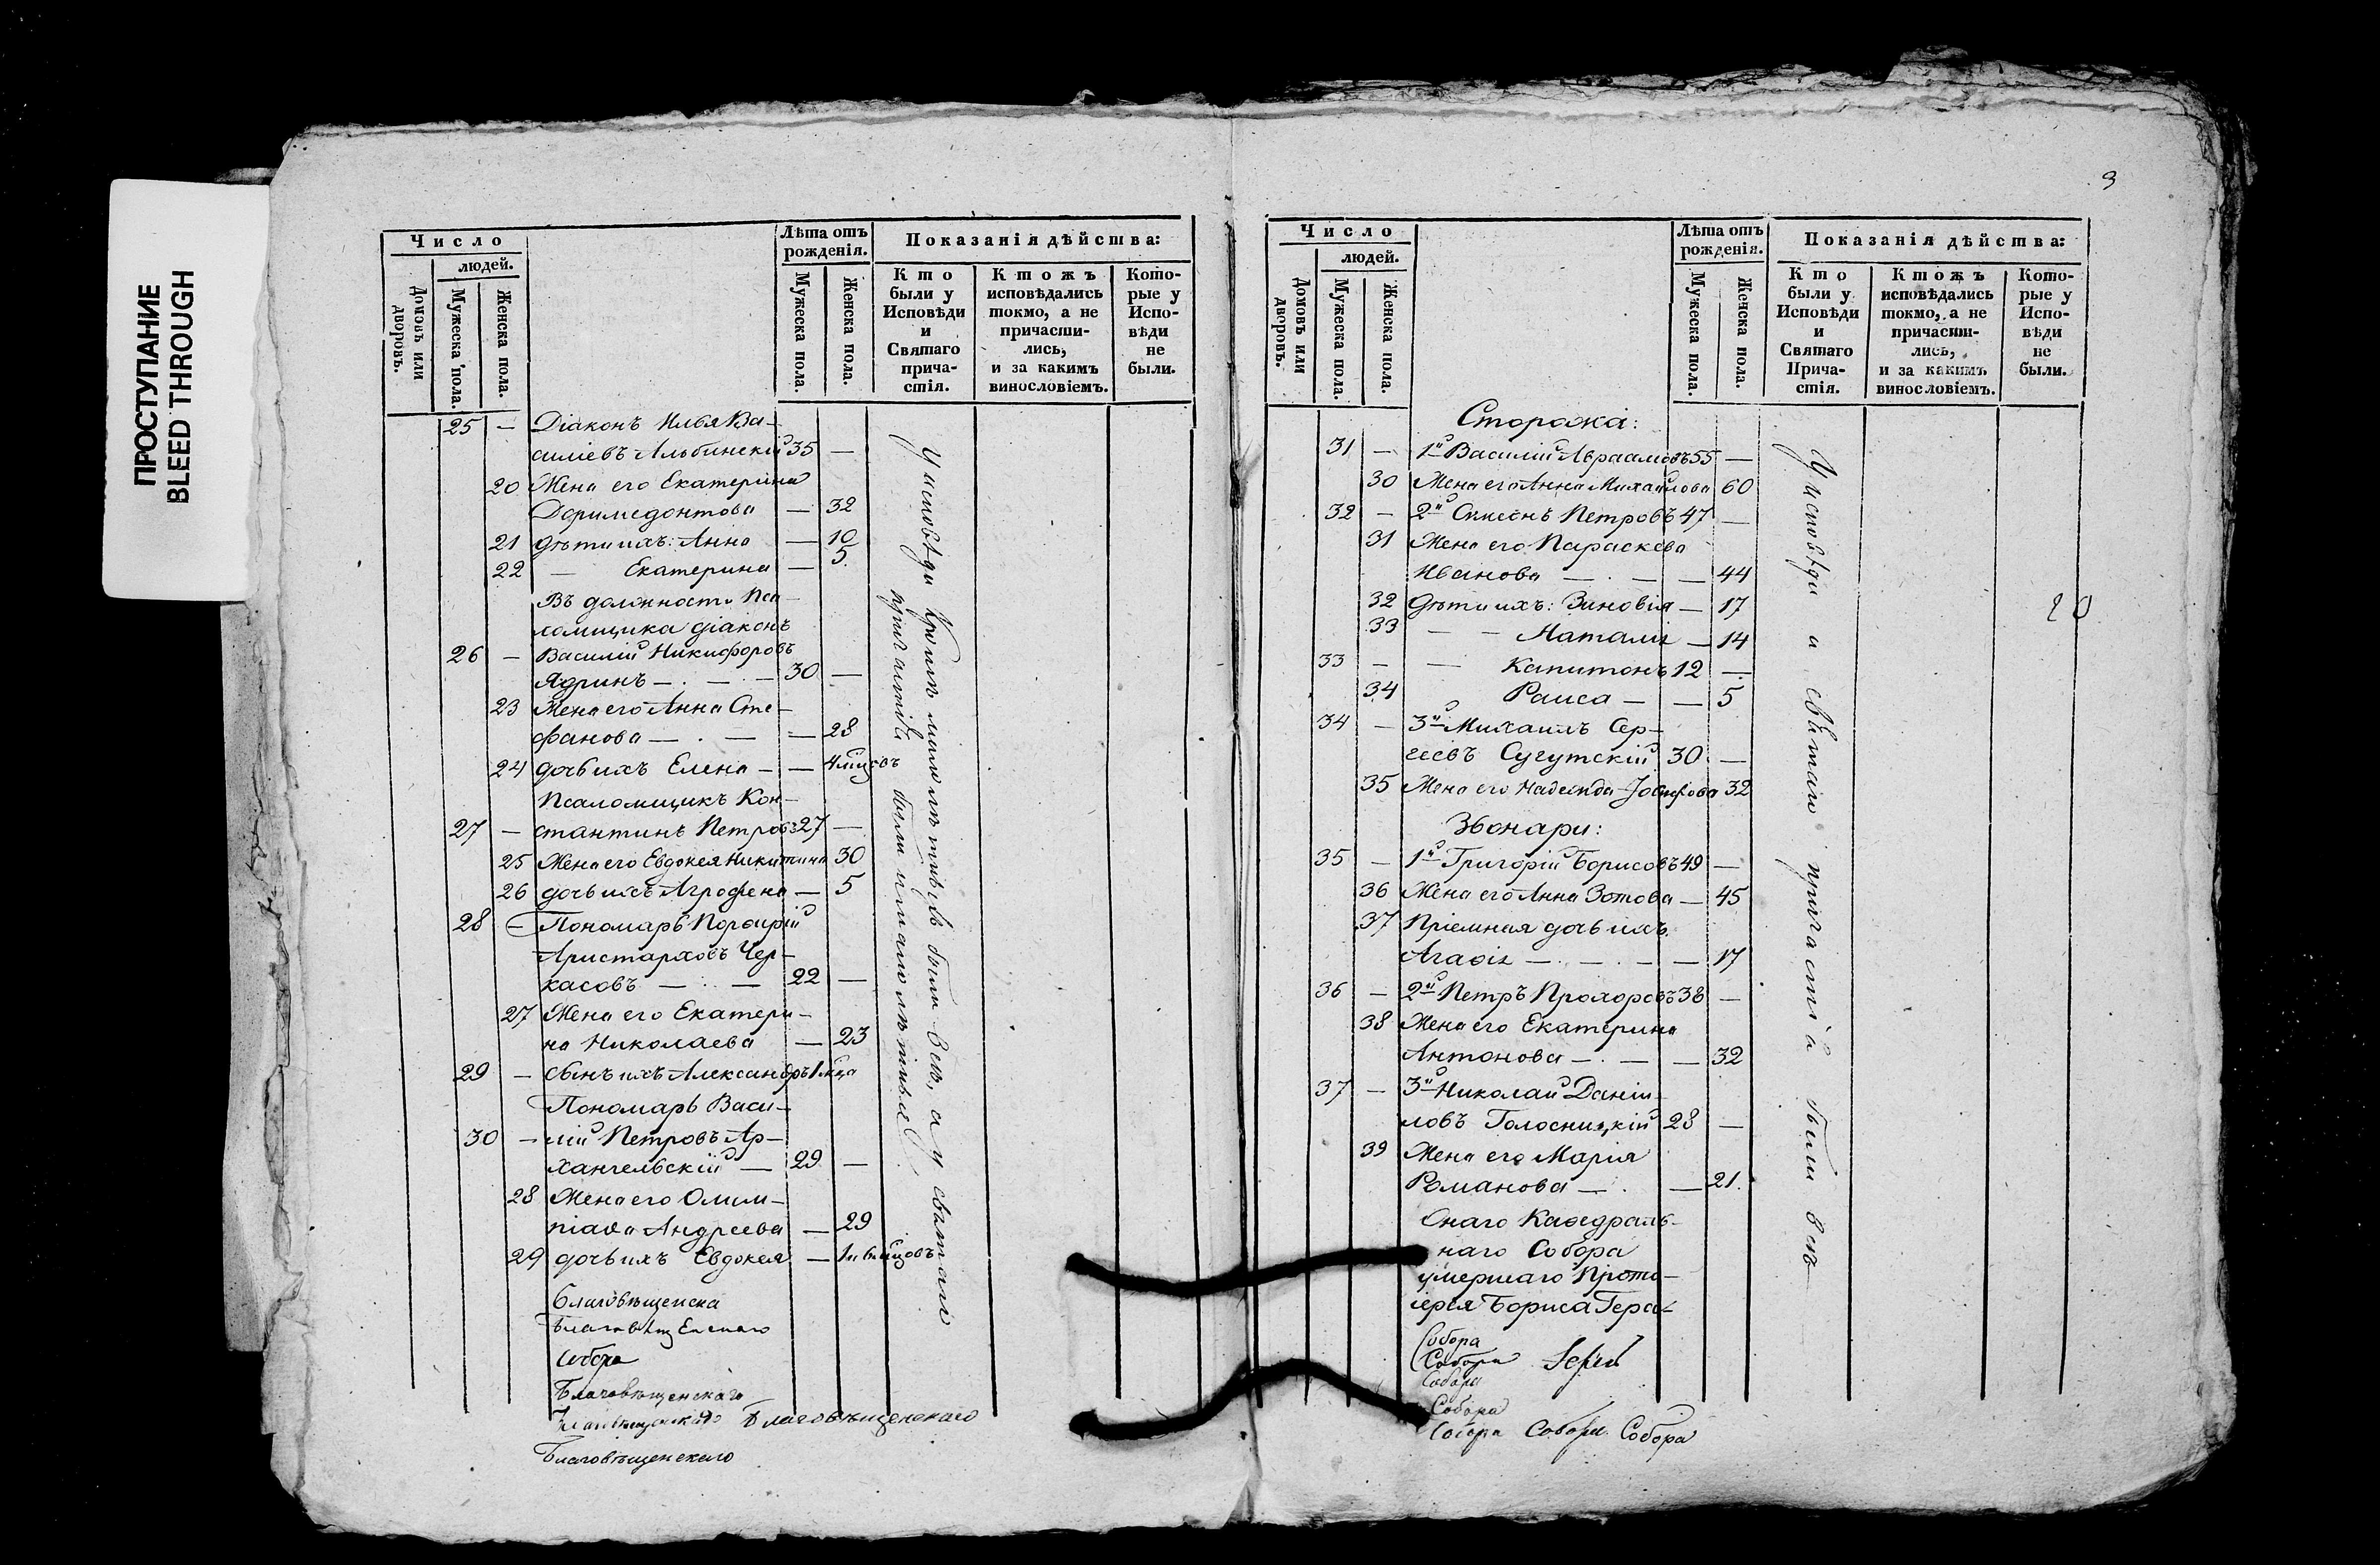 ПРОСТУПАНИЕ
BLEED THROUGH
Число
людей.
Домовъ или дворовъ.
Мужеска пола.
Женска пола.
Лѣта отъ рожденія.
Мужеска пола.
Женска пола.
Показанія дѣйства:
Кто были у Исповѣди и Святаго причастія.
Ктожъ исповѣдались токмо, а не причасти-лись, и за какимъ винословіемъ.
Кото-рые у Испо-вѣди не были.
25 — Діаконъ Илья Ва-
силіевъ Альбинскій 35 —
20 Жена его Екатерина
Доримедонтова — 32
21 дѣти ихъ: Анна — 10
22 — Екатерина — 5.
Въ должности Пса-
ломщика діаконъ
26 — Василій Никифоровъ
Ядринъ — . — . — 30 —
23 Жена его Анна Сте-
фанова — . — — 28
24 дочь ихъ Елена — — 4 мцовъ
Псаломщикъ Кон-
27 — стантинъ Петровъ 27 —
25 Жена его Евдокея Никитина 30
26 дочь ихъ Агрофена — 5
28 — Пономарь Порфирій
Аристарховъ Чер-
касовъ — . — 22 —
27 Жена его Екатери-
на Николаева — 23
29 — сынъ ихъ Александръ 1 мца
Пономарь Васи-
30 — лій Петровъ Ар-
хангельскій — 29 —
28 Жена его Олим-
піада Андреева — 29
29 дочь ихъ Евдокея — 1 и 6 мцовъ
У исповѣди кромѣ малолѣтнѣхъ были всѣ, а у святаго
причастія были и малолѣтные
Благовѣщенска
Благовѣщенскаго
собора
Благовѣщенскаго
Благовѣщенскаго Благовѣщенскаго
Благовѣщенскаго
3
Число
людей.
Домовъ или дворовъ.
Мужеска пола.
Женска пола.
Лѣта отъ рожденія.
Мужеска пола.
Женска пола.
Показанія дѣйства:
Кто были у Исповѣди и Святаго Прича-стія.
Ктожъ исповѣдались токмо, а не причасти-лись, и за какимъ винословіемъ.
Кото-рые у Испо-вѣди не были.
Сторожа:
31 — 1й Василій Авраамовъ 55 —
30 Жена его Анна Михайлова 60
32 — 2й Симеонъ Петровъ 47 —
31 Жена его Параскева
Иванова — . — — 44
32 Дѣти ихъ: Зиновія — 17
33 — — Наталія — 14
33 — — Капитонъ 12 —
34 Раиса — — 5
34 — 3й Михаилъ Сер-
геевъ Сугутскій 30 —
35 Жена его Надежда Іосифова 32
Звонари:
35 — 1й Григорій Борисовъ 49 —
36 Жена его Анна Зотова — 45
37 Пріемная дочь ихъ
Агафія — . — . — — 17
36 — 2й Петръ Прохоровъ 38 —
38 Жена его Екатерина
Антонова — . — — 32
37 — 3й Николай Даніи-
ловъ Голосницкій 28 —
39 Жена его Марія
Романова — . — 21.
Онаго Каѳедраль-
наго Собора
умершаго Прото-
іерея Бориса Гера-
У исповѣди и святаго причастія были всѣ
20
Собора
Собора
Собора
Собора
Собора Собора Собора